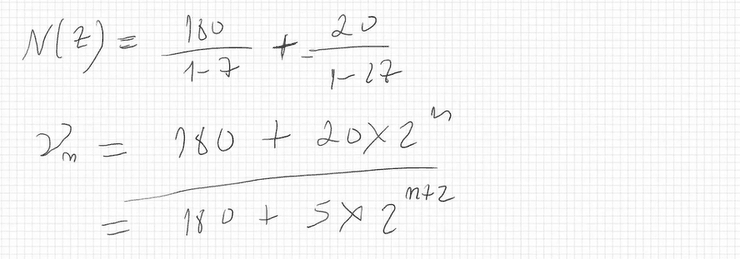 N(z) = 180/(1-z) + 20/(1-2z)
νn = 180 + 20×2^n
= 180 + 5×2^(n+2)